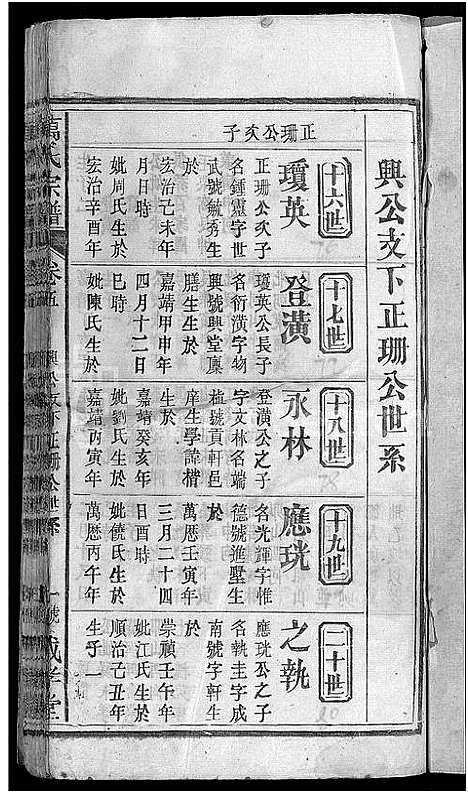 興公支下正珊公世系
正珊公次子
十六世
瓊英
正珊公次子
名鍾靈字世
武號毓秀生
宏治己未年
月日時
妣周氏生於
宏治辛酉年
十七世
登潢
瓊英公長子
名衍潢字物
興號興堂廩
膳生生於
嘉靖甲申年
四月十二日
巳時
妣陳氏生於
十八世
永林
登潢公之子
字文林名端
植號貢軒邑
庠生學諱楷
生於
嘉靖癸亥年
月日時
妣劉氏生於
嘉靖丙寅年
十九世
應珖
名光輝字惟
德號進墅生
於
萬歷壬寅年
三月二十四
日酉時
妣饒氏生於
萬歷丙午年
二十世
之執
應珖公之子
名執圭字成
南號字軒生
於
崇禎壬午年
月日時
妣江氏生於
順治己丑年
生子一
萬氏宗譜
卷五
興公支下正珊公世系
一號